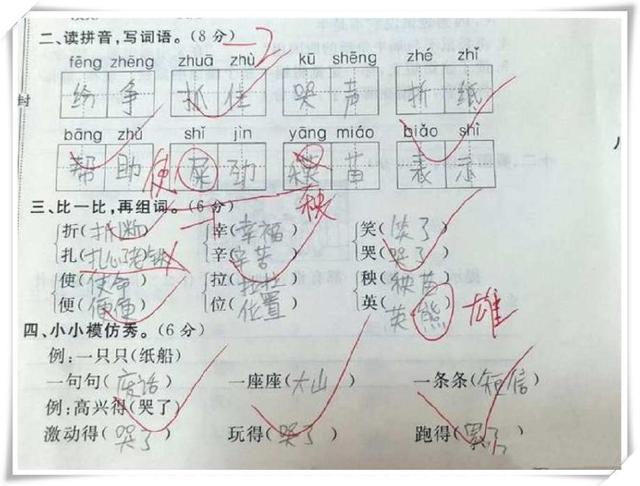 二、读拼音,写词语。(8分) -2
fēng zhēng zhuā zhù kū shēng zhé zhǐ
封
纷争 抓住 哭声 折纸
bāng zhǔ shǐ jìn yāng miáo biǎo shì
帮助 使 屎劲 苗 表示
秧
三、比一比,再组词。(6分)
折(折断) 幸(幸福) 笑(笑了)
扎(扎心了老铁) 辛(辛苦) 哭(哭了)
使(使命) 拉(拉拉) 秧(秧苗)
便(便便) 位(位置) 英(英熊) 雄
四、小小模仿秀。(6分)
例:一只只(纸船)
一句句(废话) 一座座(大山) 一条条(短信)
例:高兴得(哭了)
激动得(哭了) 玩得(哭了) 跑得(累了)